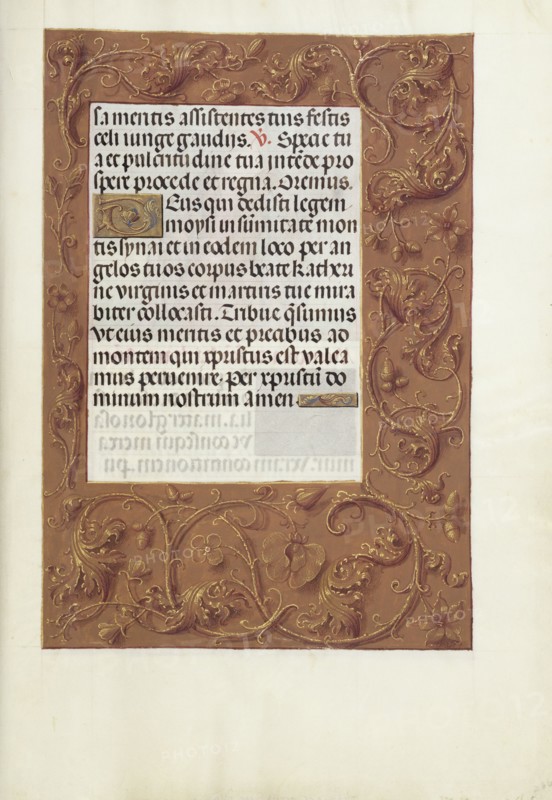 sa mentis assistentes tuis festis
celi iunge gaudiis. V. Specie tu
a et pulcritudine tua intēde pro
spere procede et regna. Oremus.
Deus qui dedisti legem
moysi in sūmitate mon
tis synai et in eodem loco per an
gelos tuos corpus beate Katheri
ne virginis et martiris tue mira
biliter collocasti. Tribue q̄sumus
vt eius meritis et precibus ad
montem qui xpristus est valea
mus peruenire. per xpristū do
minum nostrum Amen.
PHOTO12